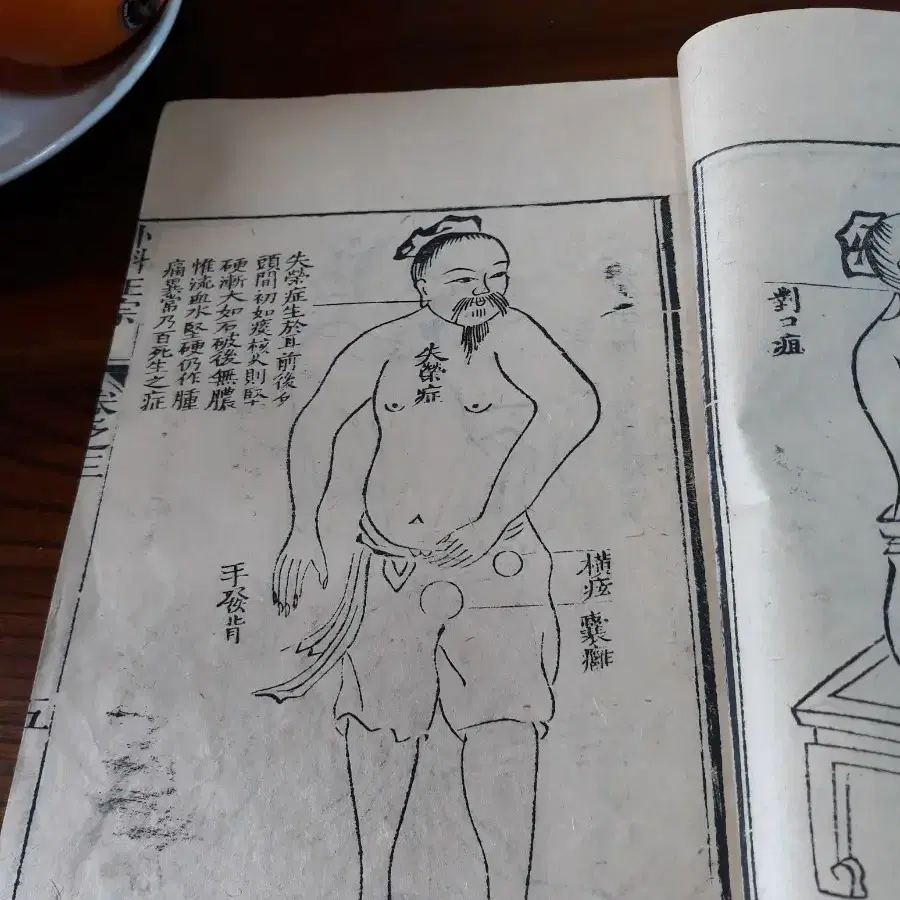 對口疽
失榮症生於耳前後及
頭間初如痰核久則堅
硬漸大如石破後無膿
惟流血水堅硬仍作腫
痛異常乃百死生之症
失榮症
橫痃
囊癰
手發背
外科正宗
卷之三
五